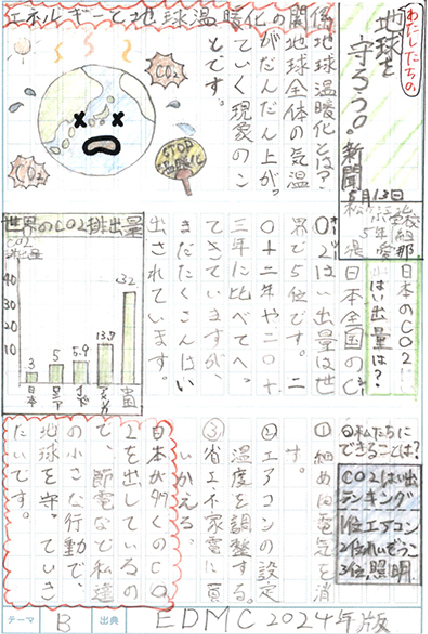 わたしたちの
地球を
守ろう。新聞
5月13日
エネルギーと地球温暖化の関係
地球温暖化とは?
地球全体の気温
がだんだん上が
っていく現象のこ
とです。
CO2
CO2
STOP
温暖化
日本のCO2
はい出量は?
日本全国のC
O2はい出量は世
界で5位です。二
〇十二年や二〇十
三年に比べてへっ
てきていますが、
まだたくさんはい
出されています。
世界のCO2排出量
CO2
40
30
20
10
3
5
32
日本
ロシア
インド
アメリカ
中国
◎私たちに
できることは?
①細めに電気を消
す。
②エアコンの設定
温度を調整する。
③省エネ家電に買
いかえる。
CO2はい出
ランキング
1位エアコン
2位れいぞうこ
3位照明
日本が多くのCO
2を出しているの
で、節電など私達
の小さな行動で、
地球を守っていき
たいです。
テーマ B 出典 EDMC2024年版